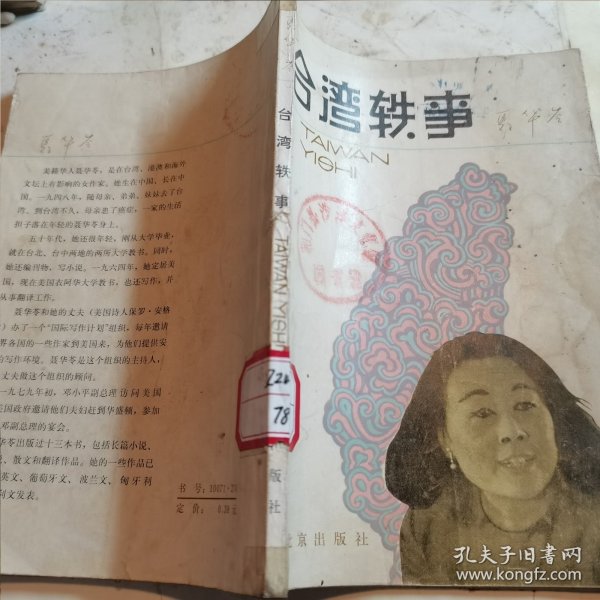 聂华苓
美籍华人聂华苓，是在台湾、港澳和海外
文坛上有影响的女作家。她生在中国，长在中
国，一九四八年，随母亲、弟弟、妹妹去了台
湾。到台湾不久，母亲患了癌症，一家的生活
担子落在年轻的聂华苓身上。
五十年代，她还很年轻，刚从大学毕业，
就在台北、台中两地的两所大学教书。同时，
她还编刊物，写小说。一九六四年，她定居美
国，现在美国衣阿华大学教书，也还写作，并
从事翻译工作。
聂华苓和她的丈夫（美国诗人保罗·安格
）办了一个“国际写作计划”组织，每年邀请
界各国的一些作家到美国来，为他们提供安
的写作环境。聂华苓是这个组织的主持人，
丈夫做这个组织的顾问。
一九七九年初，邓小平副总理访问美国
美国政府邀请他们夫妇赴到华盛顿，参加
邓副总理的宴会。
华苓出版过十三本书，包括长篇小说、
、散文和翻译作品。她的一些作品已
英文、葡萄牙文、波兰文、匈牙利
列文发表。
书号：10071·
定价：0.38元
台湾轶事 TAIWAN YISHI
228
78
版社
台湾轶事
TAIWAN
YISHI
聂华苓
北京出版社
孔夫子旧书网
www.kongfz.com